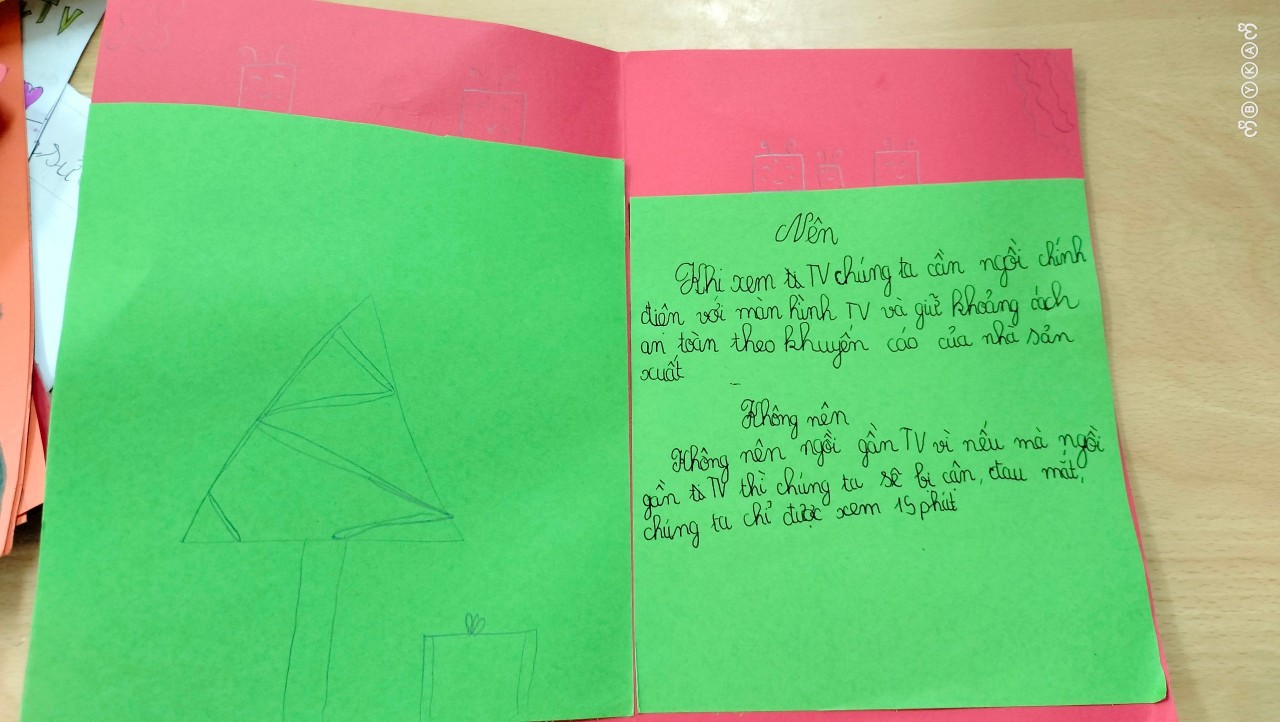 TV
Nên
Khi xem TV chúng ta cần ngồi chính
điện với màn hình TV và giữ khoảng cách
an toàn theo khuyến cáo của nhà sản
xuất
Không nên
Không nên ngồi gần TV vì nếu mà ngồi
gần TV thì chúng ta sẽ bị cận, đau mắt,
chúng ta chỉ được xem 15 phút
ⒷⓎⓀⒶ